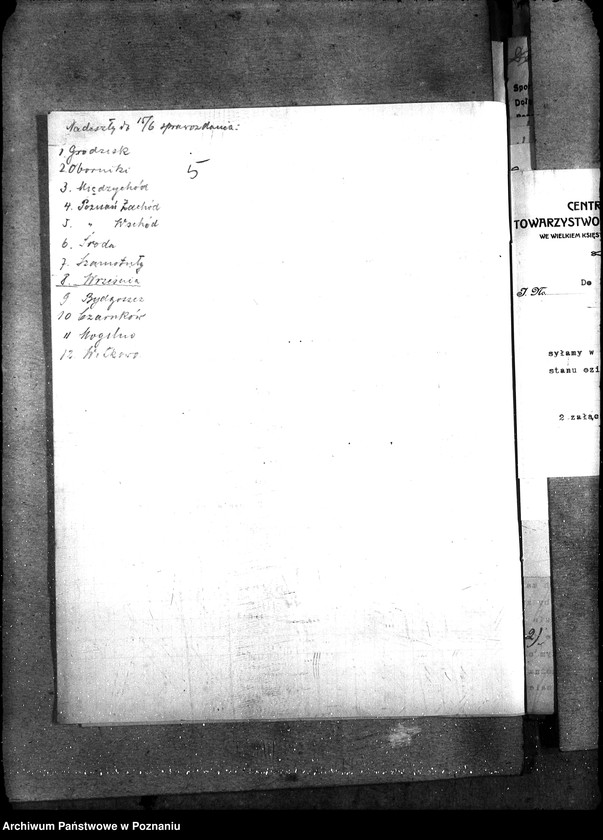 Nadeszły do 15/6 sprawozdania:
1 Grodzisk
2 Oborniki
5
3. Międzychód
4. Poznań Zachód
5. " Wschód
6. Środa
7. Szamotuły
8. Września
9 Bydgoszcz
10 Czarnków
11 Mogilno
12 Witkowo
Spo
Dol
CENTR
TOWARZYSTWO
WE WIELKIEM KSIĘS
De
J. No.
syłamy w
stanu ozi
2 załąc
2)
Archiwum Państwowe w Poznaniu